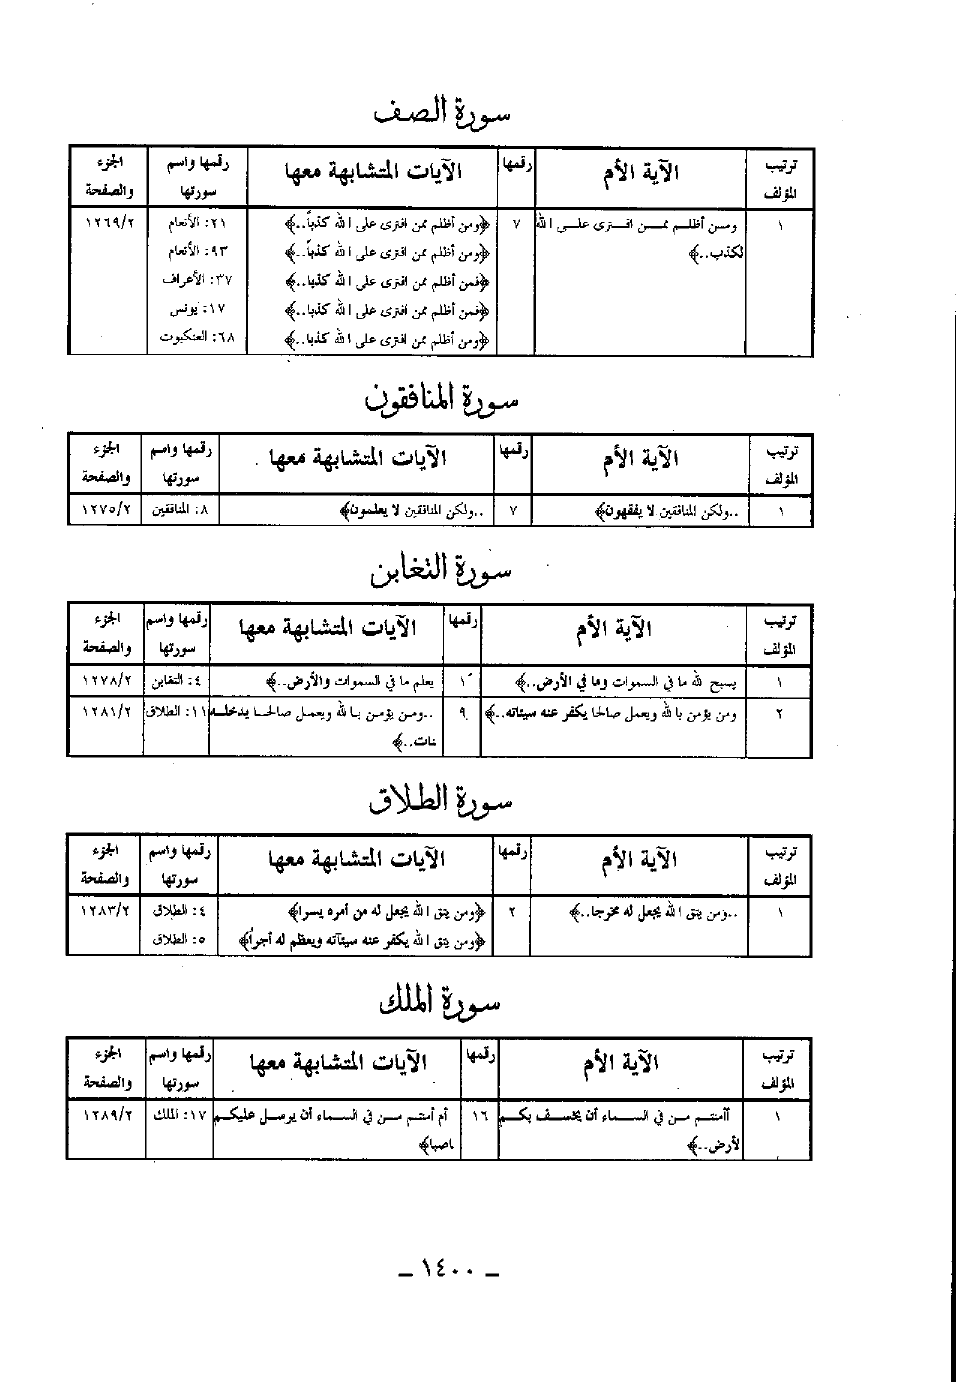 سورة الصف
ترتيب المؤلف | الآية الأم | رقمها | الآيات المتشابهة معها | رقمها واسم سورتها | الجزء والصفحة
١ | ومن أظلم ممن افترى على الله | ٧ | ﴿ومن أظلم ممن افترى على الله كذباً..﴾ | ٢١: الأنعام | ١٢٦٩/٢
لكذب..﴾ | ﴿ومن أظلم ممن افترى على الله كذباً..﴾ | ٩٣: الأنعام
﴿فمن أظلم ممن افترى على الله كذبا..﴾ | ٣٧: الأعراف
﴿فمن أظلم ممن افترى على الله كذبا..﴾ | ١٧: يونس
﴿ومن أظلم ممن افترى على الله كذبا..﴾ | ٦٨: العنكبوت
سورة المنافقون
ترتيب المؤلف | الآية الأم | رقمها | الآيات المتشابهة معها | رقمها واسم سورتها | الجزء والصفحة
١ | ..ولكن المنافقين لا يفقهون﴾ | ٧ | ..ولكن المنافقين لا يعلمون﴾ | ٨: المنافقين | ١٢٧٥/٢
سورة التغابن
ترتيب المؤلف | الآية الأم | رقمها | الآيات المتشابهة معها | رقمها واسم سورتها | الجزء والصفحة
١ | يسبح لله ما في السموات وما في الأرض..﴾ | ١ | يعلم ما في السموات والأرض..﴾ | ٤: التغابن | ١٢٧٨/٢
٢ | ومن يؤمن بالله ويعمل صالحا يكفر عنه سيئاته..﴾ | ٩ | ..ومن يؤمن بالله ويعمل صالحا يدخله | ١١: الطلاق | ١٢٨١/٢
نات..﴾
سورة الطلاق
ترتيب المؤلف | الآية الأم | رقمها | الآيات المتشابهة معها | رقمها واسم سورتها | الجزء والصفحة
١ | ..ومن يتق الله يجعل له مخرجا..﴾ | ٢ | ﴿ومن يتق الله يجعل له من أمره يسرا﴾ | ٤: الطلاق | ١٢٨٣/٢
﴿ومن يتق الله يكفر عنه سيئآته ويعظم له أجراً﴾ | ٥: الطلاق
سورة الملك
ترتيب المؤلف | الآية الأم | رقمها | الآيات المتشابهة معها | رقمها واسم سورتها | الجزء والصفحة
١ | أأمنتم من في السماء أن يخسف بكم | ١٦ | أم أمنتم من في السماء أن يرسل عليكم | ١٧: الملك | ١٢٨٩/٢
لأرض..﴾ | اصبا﴾
ـ ١٤٠٠ ـ